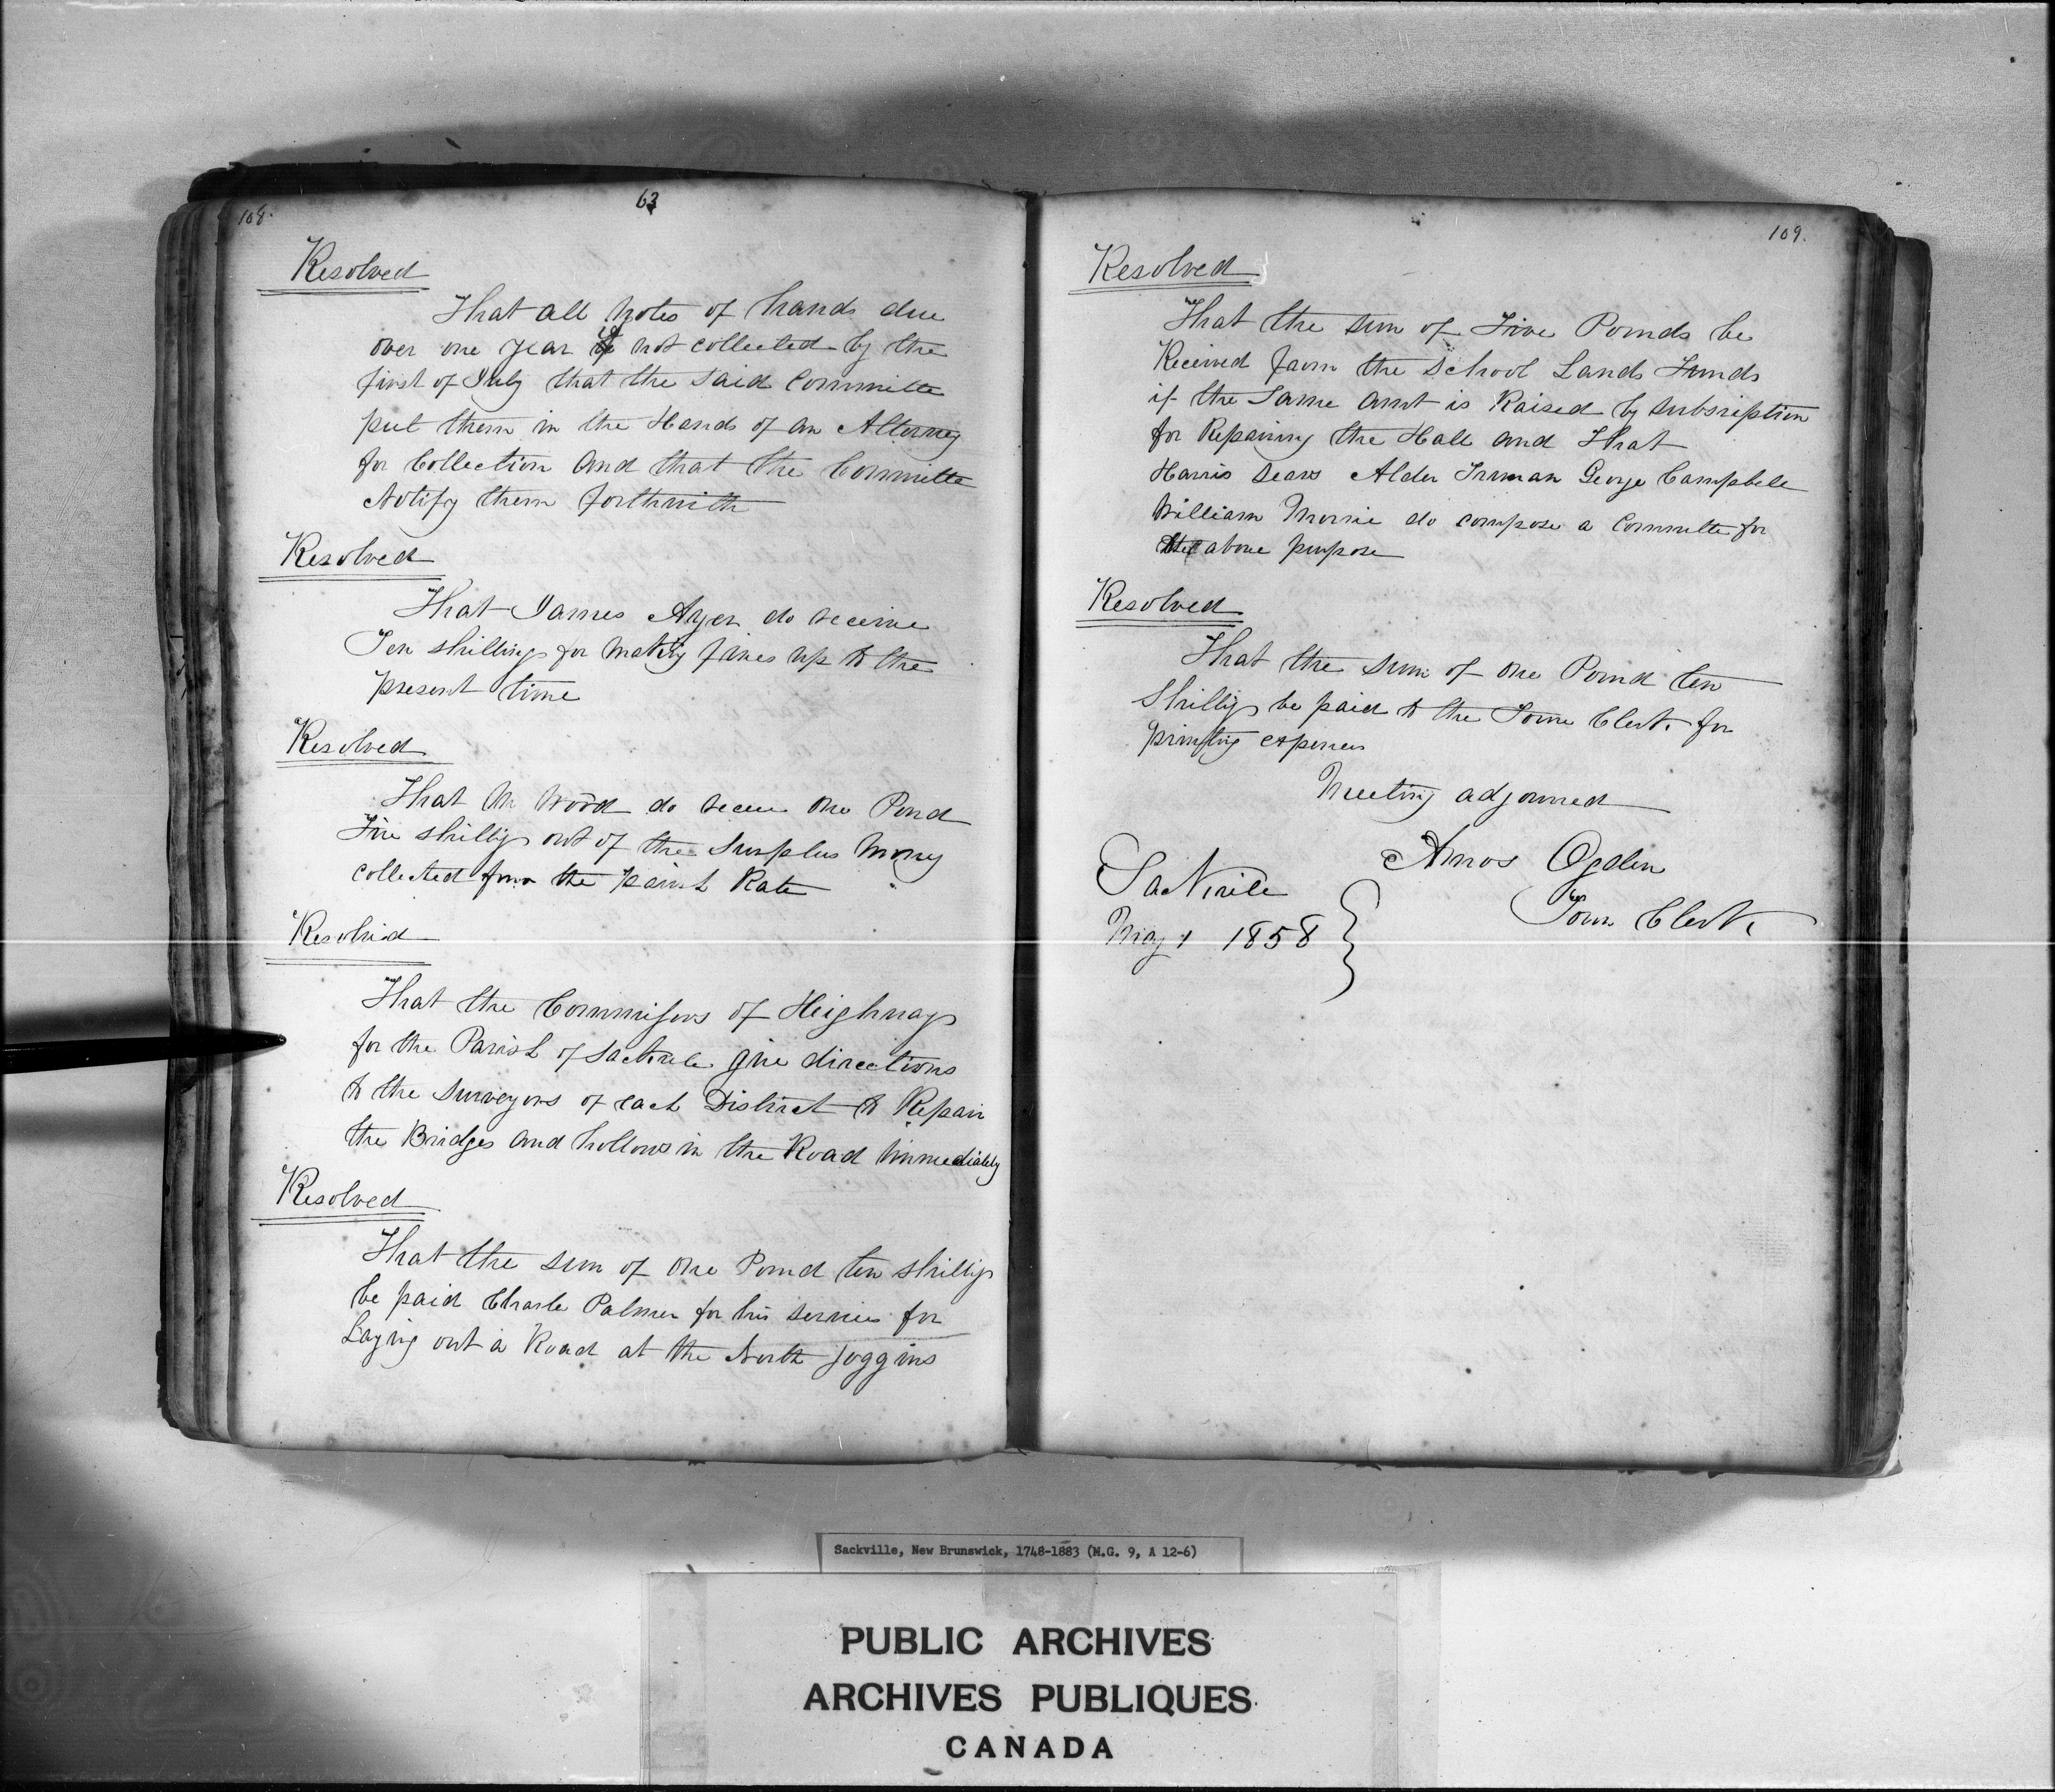 108.
63
Resolved
That all Notes of hands due
over one year if not collected by the
first of July that the said Committe
put them in the Hands of an Attorney
for Collection and that the Committe
Notify them forthwith
Resolved
That James Ayer do receive
Ten shillings for making fires up to the
present time
Resolved
That Mr Wood do receive One Pond
Five shilligs out of the Surplus Money
collected from the parish Rate
Resolved
That the Commissors of Heighways
for the Parish of Sackvile give directions
to the Surveyors of each District to Repair
the Bridges and hollows in the Road immediately
Resolved
That the sum of One Pound ten shilligs
be paid Charle Palmer for his servies for
Laying out a Road at the North Joggins
109.
Resolved
That the sum of Five Pounds be
Received from the School Lands Funds
if the Same Amt is Raised by subsription
for Repairing the Hall and That
Harris Sears Alder Truman George Campbell
William Morrie do compose a Committe for
the above purpose
Resolved
That the sum of One Pound ten
Shilligs be paid to the Town Clerk for
printing expenses
Meeting adjourned
Amos Ogden
Town Clerk
Sackvile
May 1 1858
Sackville, New Brunswick, 1748-1883 (M.G. 9, A 12-6)
PUBLIC ARCHIVES
ARCHIVES PUBLIQUES
CANADA